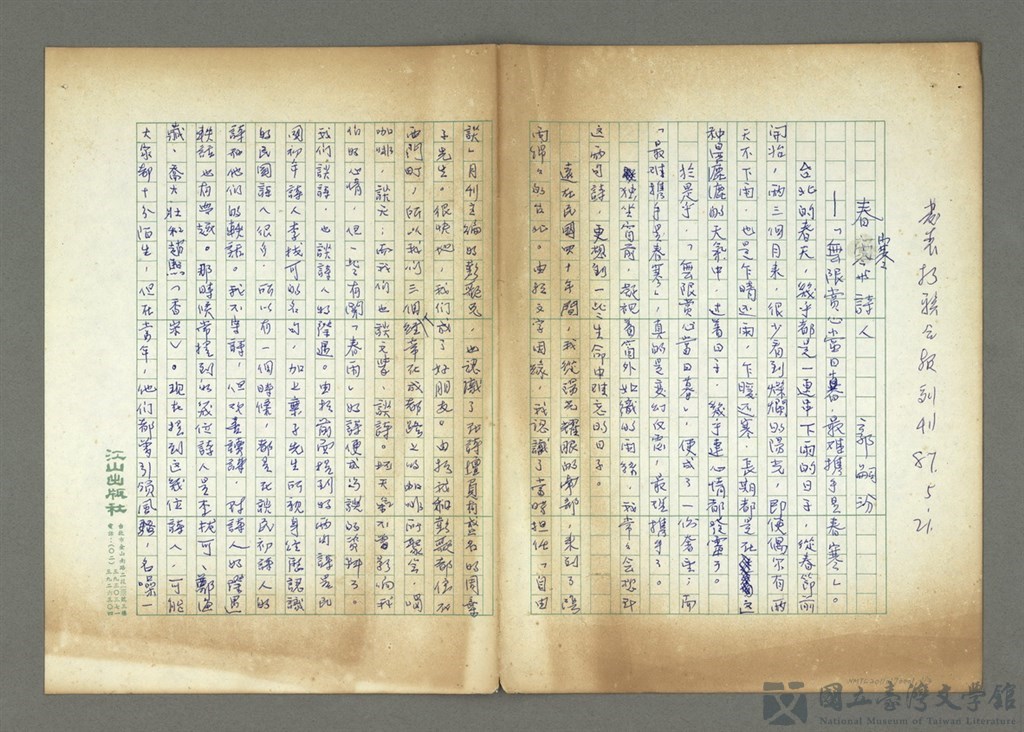 發表於聯合報副刊 87.5.21.
春寒 詩人
——「無限賞心當日暮,最難攜手是春寒」。
郭嗣汾
台北的春天,幾乎都是一連串下雨的日子,從春節前
開始,兩三個月來,很少看到燦爛的陽光,即使偶尔有兩
天不下雨,也是乍晴还雨,乍暖还寒,長期都是在
种昱麗麗的天象中,过着日子,幾乎連心情都發霉了。
於是乎,「無限賞心當日暮」,便成了一份奢望;而
「最难攜手是春寒」,真的是衰朽仅需,最难攜手了。
獨坐窗前,凝視着窗外如織的雨絲,我常常会想到
这兩句詩,更想到一些生命中难忘的日子。
遠在民國四十年間,我從陽光耀眼的南部,來到了陰
雨綿綿的台北。由於文字因緣,我認識了當時担任「自由
談」月刊主編的彭歌兄,也認識了和詩壇負有盛名的周棄
子先生。很快地,我們成了好朋友。由於我和彭歌都住在
西門町,所以我们三個經常在成都路上的咖啡廳聚会,喝
咖啡,談天;而我们也談文學,談詩。
伯的心情,但一些有關「春雨」的詩便成為談的資料了。
我们談詩,也談詩人的際遇。由於前面提到的兩句詩是民
國初年詩人李拔可的名句,加上棄子先生所親身經歷認識
的民國詩人很多,所以有一個時候,都是在談民初詩人的
詩和他们的軼話。我不学詩,但欢喜讀詩,对詩人的際遇
軼話也有興趣。那時候常提到的幾位詩人是李拔可、鄭海
藏、喬大壯和趙熙(香宋)。現在提到这幾位詩人,可能
大家都十分陌生,但在當年,他们都曾引領風騷,名噪一
江山出版社
國立臺灣文學館
National Museum of Taiwan Literature